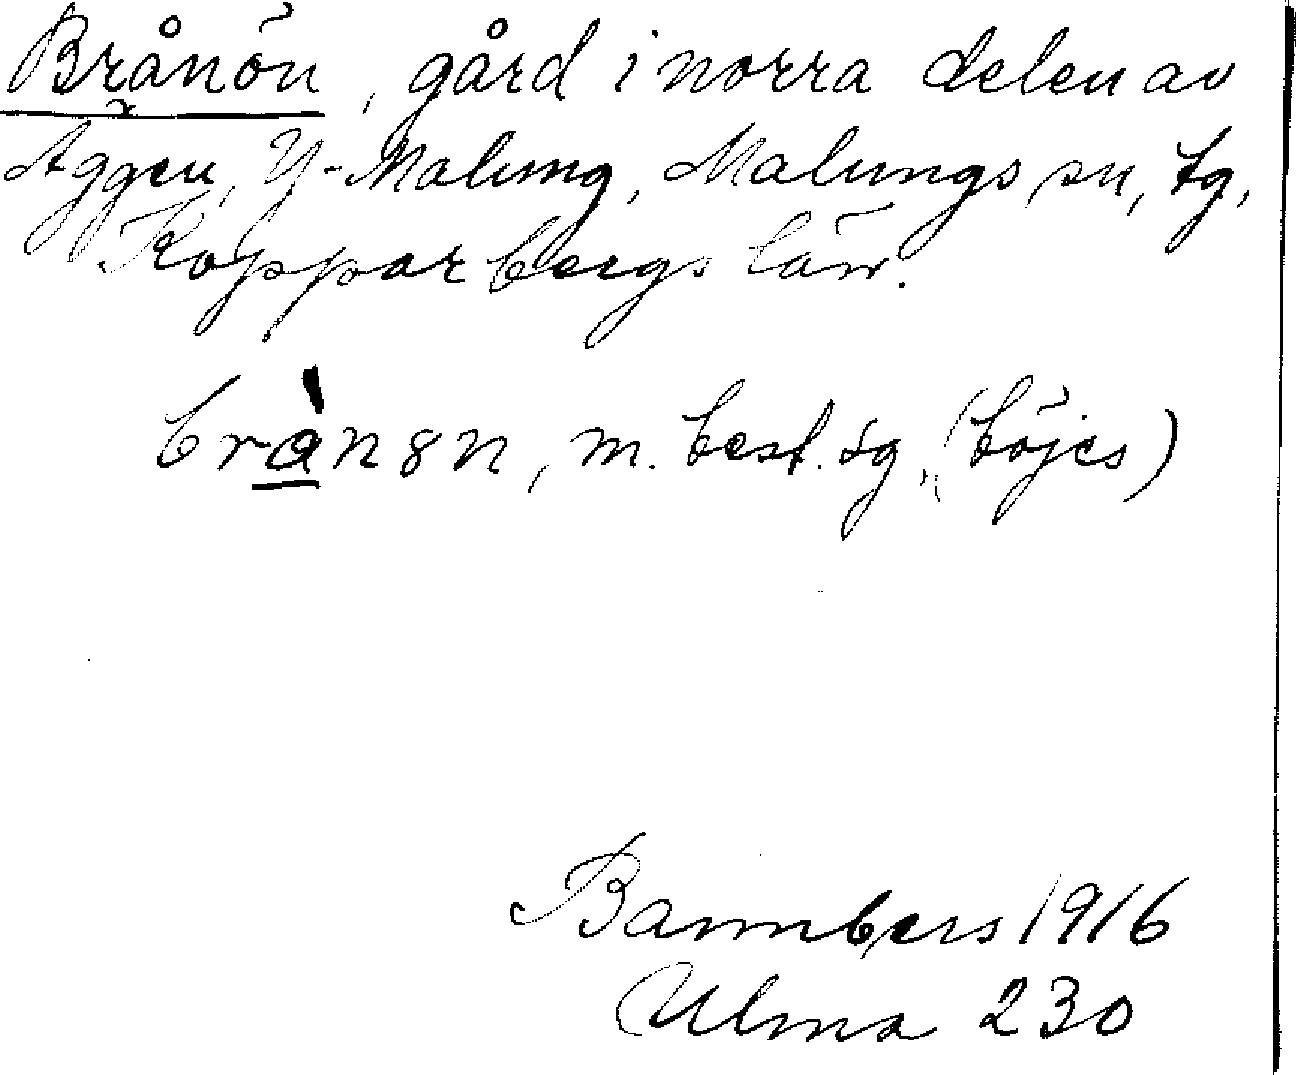 Brånön, gård i norra delen av
Äggen, Y-Malung, Malungs sn, tg,
Kopparbergs län.
brånөn, m. best. sg. (böjes)
Bannbers 1916
Ulma 230